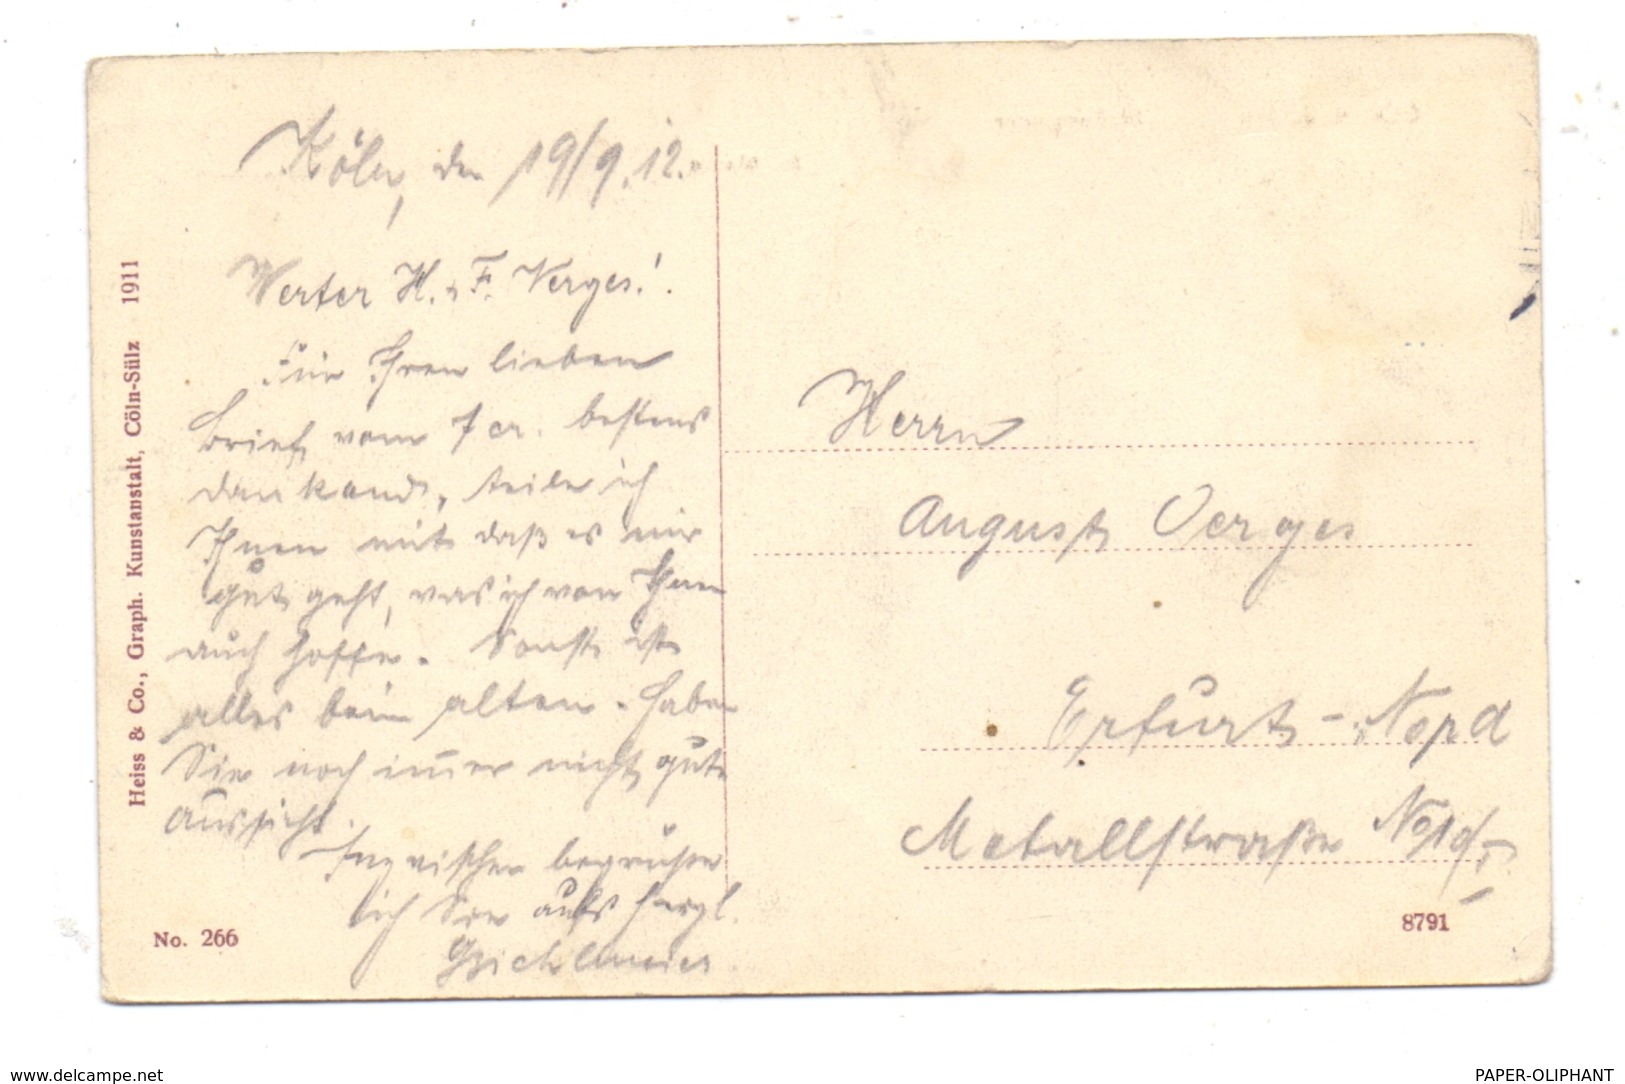 Köln, den 19/9.12.
Werter H. u F. Verges!
Für Ihren lieben
Brief vom 7 cr. bestens
dankend, teile ich
Ihnen mit daß es mir
gut geht, was ich von Ihnen
auch hoffe. Sonst ist
alles beim alten. Haben
Sie noch im̅er nicht gute
Aussicht.
Inzwischen begrüße
ich Sie aufs herzl.
Herrn
August Verges
Erfurt-Nord
Metallstraße No 19
Heiss & Co., Graph. Kunstanstalt, Cöln-Sülz 1911
No. 266
8791
www.delcampe.net
PAPER-OLIPHANT